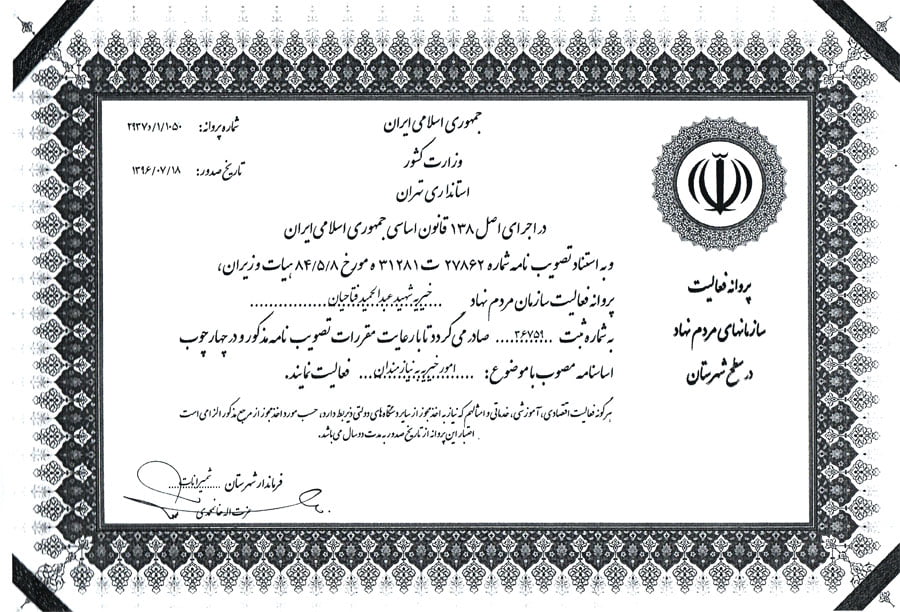 شماره پروانه: ۲۹۳۷د/۱/۱۰۵۰
تاریخ صدور: ۱۳۹۶/۰۷/۱۸
جمهوری اسلامی ایران
وزارت کشور
استانداری تهران
در اجرای اصل ۱۳۸ قانون اساسی جمهوری اسلامی ایران
و به استناد تصویب نامه شماره ۲۷۸۶۲ ت ۳۱۲۸۱ ه مورخ ۸۴/۵/۸ هیات وزیران،
پروانه فعالیت سازمان مردم نهاد ...خیریه شهید عبدالحمید فتاحیان................
به شماره ثبت ...۳۶۷۵۱... صادر می گردد تا با رعایت مقررات تصویب نامه مذکور و در چهارچوب
اساسنامه مصوب با موضوع: ......امور خیریه به نیازمندان... فعالیت نمایند.
هرگونه فعالیت اقتصادی، آموزشی، خدماتی و امثالهم که نیاز به اخذ مجوز از سایر دستگاه‌های دولتی ذیربط دارد، حسب مورد اخذ مجوز از مرجع مذکور الزامی است
. اعتبار این پروانه از تاریخ صدور به مدت دو سال می باشد.
فرماندار شهرستان ....شمیرانات....
عزت اله خانمحمدی
پروانه فعالیت
سازمانهای مردم نهاد
در سطح شهرستان